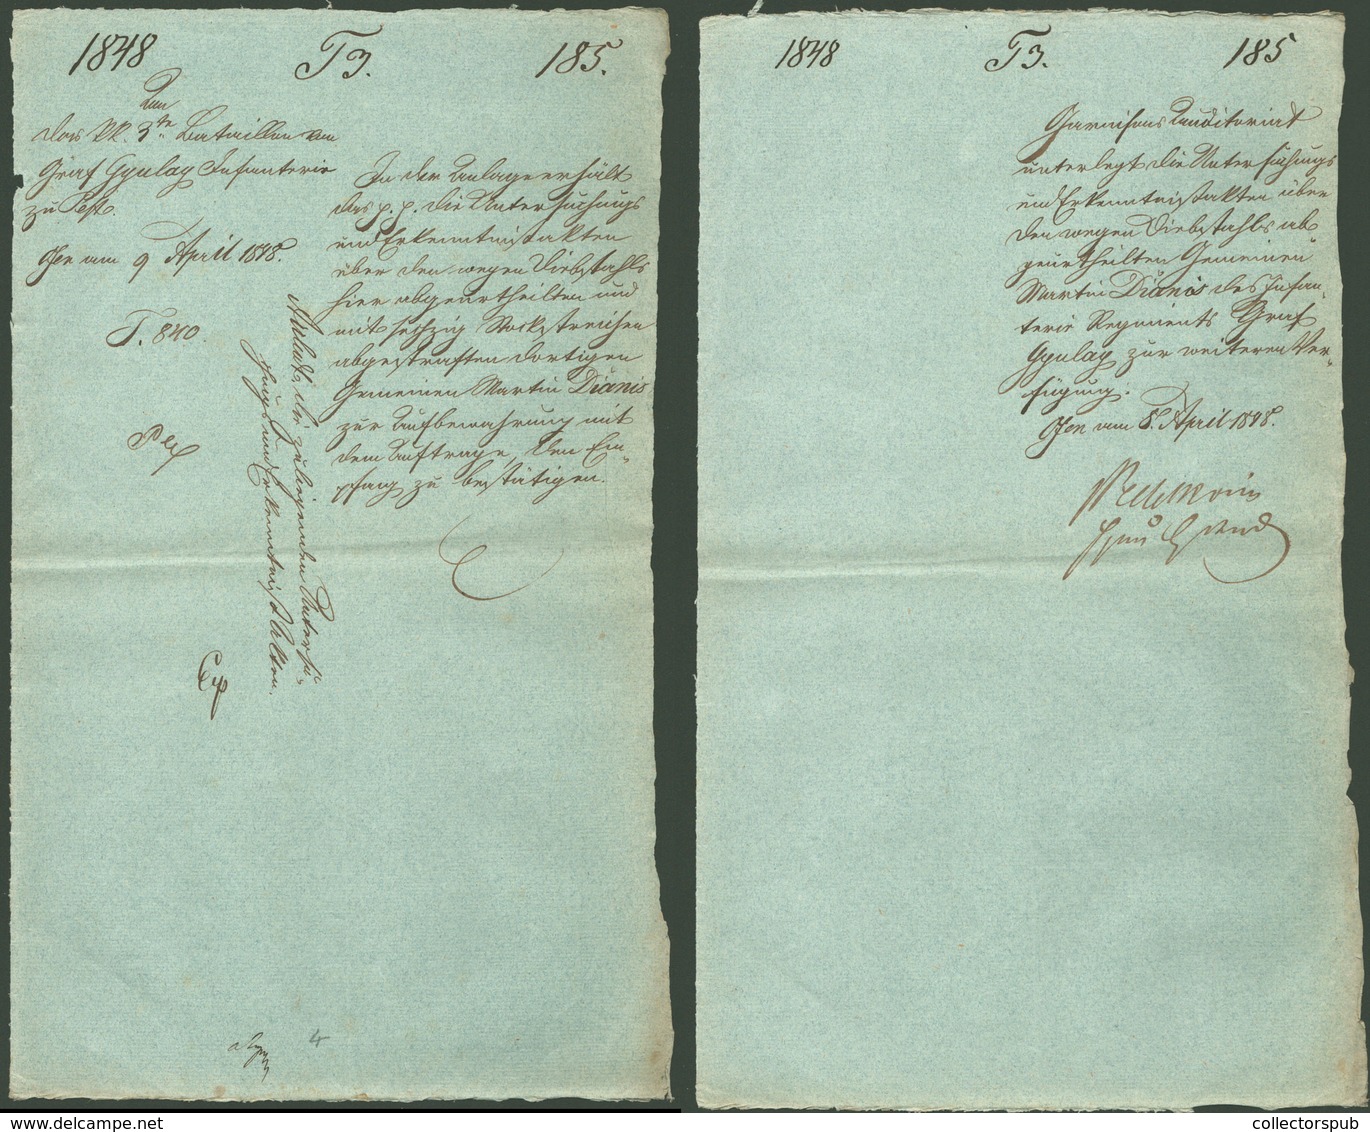 1848 T3. 185.
An
das kk. 3te Bataillon von
Graf Gyulay Infanterie
zu Pest.
Ofen am 9 April 1848.
T. 840.
In der Anlage erhält
das p. p. die Untersuchungs
und Erkenntnißakten
über den wegen Diebstahls
hier abgeurtheilten und
mit sechzig Stockstreichen
abgestraften dortigen
Gemeinen Martin Dianis
zur Aufbewahrung mit
dem Auftrage, den Em-
pfang zu bestätigen.
der zuliegenden Untersu-
chungs und Erkenntniß Akten.
Exp
4
1848 T3. 185
Garnisons Auditoriat
unterlegt die Untersuchungs
und Erkenntnißakten über
den wegen Diebstahls ab
geurtheilten Gemeinen
Martin Dianis des Infan-
terie Regiments Graf
Gyulay zur weiteren Ver-
fügung.
Ofen am 8. April 1848.
collectorspub